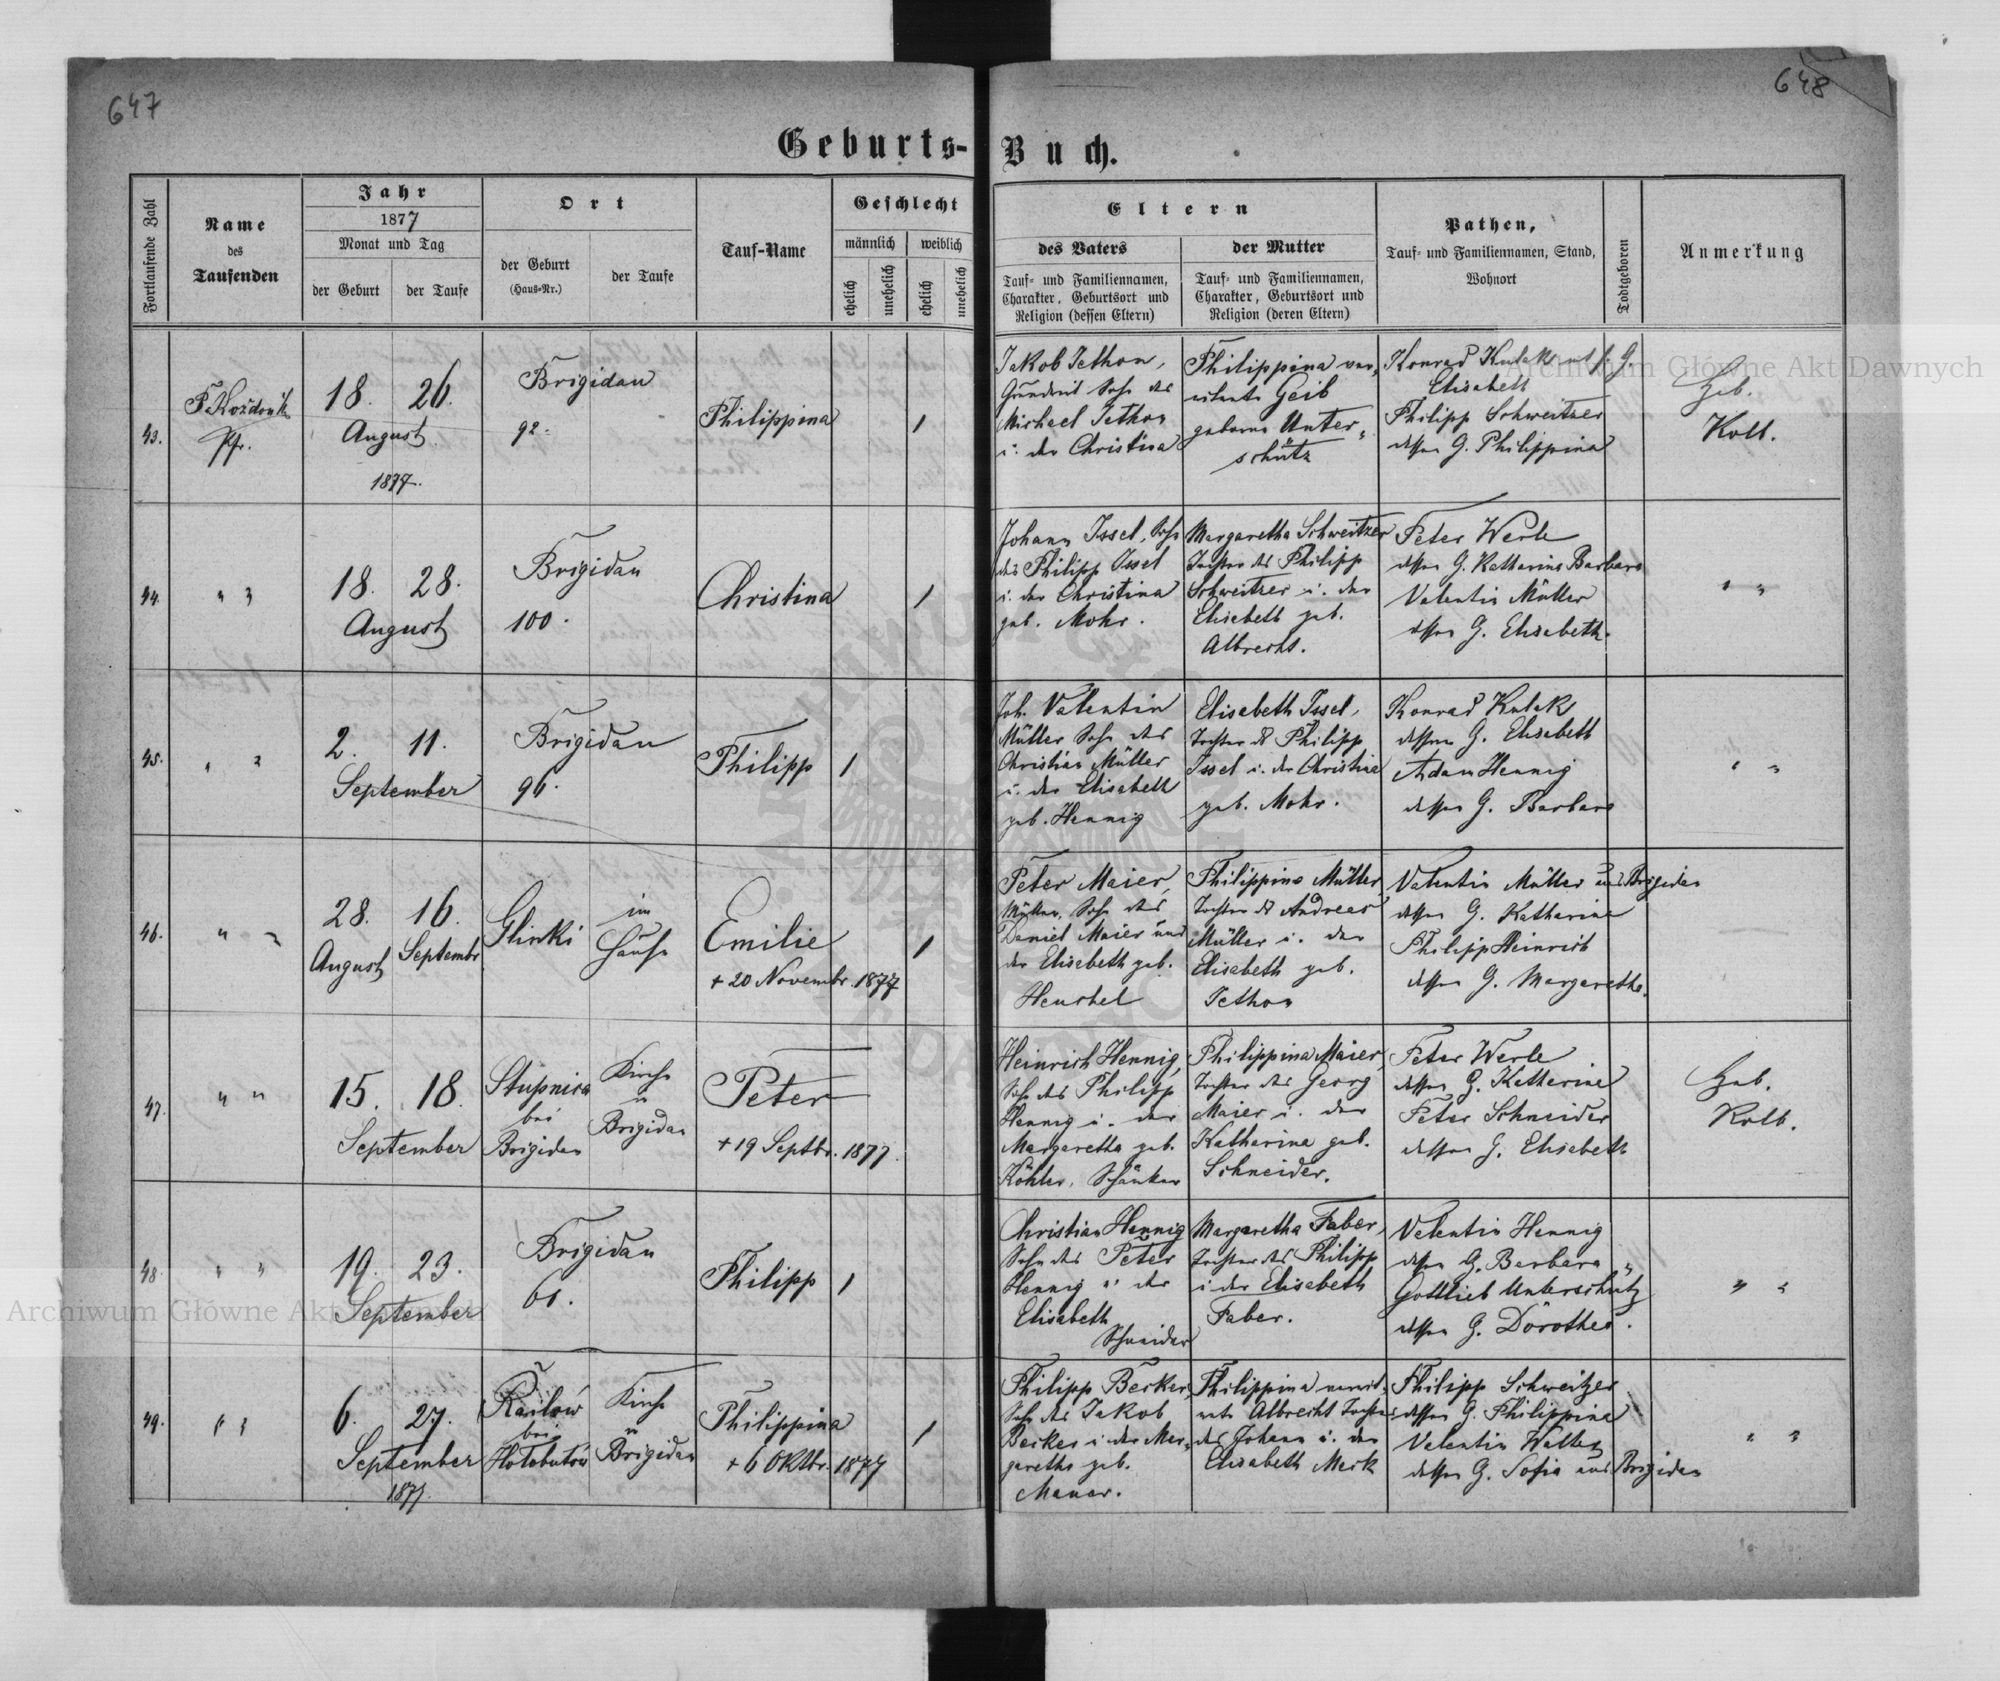 647
648
Geburts-Buch.
Fortlaufende Zahl
Name
des
Taufenden
Jahr
1877
Monat und Tag
der Geburt
der Taufe
Ort
der Geburt
(Haus-Nr.)
der Taufe
Tauf-Name
Geschlecht
männlich
weiblich
ehelich
unehelich
ehelich
unehelich
Eltern
des Vaters
Tauf- und Familiennamen,
Charakter, Geburtsort und
Religion (dessen Eltern)
der Mutter
Tauf- und Familiennamen,
Charakter, Geburtsort und
Religion (deren Eltern)
Pathen,
Tauf- und Familiennamen, Stand,
Wohnort
Todtgeboren
Anmerkung
43.
Pfr.
18. 26.
August
1877.
Brigidau
92.
Philippina
1
Jakob Jethon,
Sohn des
Michael Jethon
u. der Christina
Philippina
Geib
geborne Unter-
schütz
Konrad Kulak
Elisabeth
Philipp Schweitzer
dessen G. Philippina
Heb.
Kolb.
44.
" "
18. 28.
August
Brigidau
100.
Christina
1
Johann Issel, Sohn
des Philipp Issel
u. der Christina
geb. Mohr.
Margaretha Schweitzer
Tochter des Philipp
Schweitzer u. der
Elisabeth geb.
Albrecht.
Peter Werle
dessen G. Katharina Barbara
Valentin Müller
dessen G. Elisabeth.
" "
45.
" "
2. 11.
September
Brigidau
96.
Philipp
1
Joh. Valentin
Müller Sohn des
Christian Müller
u. der Elisabeth
geb. Hennig
Elisabeth Issel,
Tochter des Philipp
Issel u. der Christina
geb. Mohr.
Konrad Kulak
dessen G. Elisabeth
Adam Hennig
dessen G. Barbara
" "
46.
" "
28. 16.
August Septembr
Glinki
im
Hause
Emilie
+ 20 Novembr. 1877
1
Peter Maier,
Müller, Sohn des
Daniel Maier und
der Elisabeth geb.
Henchel
Philippina Müller
Tochter des Andreas
Müller u. der
Elisabeth geb.
Jethon
Valentin Müller aus Brigidau
dessen G. Katharina
Philipp Heinrich
dessen G. Margaretha.
47.
" "
15. 18.
September
Stupnica
bei
Brigidau
Kirche
in
Brigidau
Peter
+ 19 Septbr. 1877.
Heinrich Hennig,
Sohn des Philipp
Hennig u. der
Margaretha geb.
Köhler,
Philippina Maier,
Tochter des Georg
Maier u. der
Katharina geb.
Schneider.
Peter Werle
dessen G. Katharina
Peter Schneider
dessen G. Elisabeth
Heb.
Kolb.
48.
" "
19. 23.
September
Brigidau
61.
Philipp
1
Christian Hennig
Sohn des Peter
Hennig u. der
Elisabeth
Schneider
Margaretha Faber,
Tochter des Philipp
u. der Elisabeth
Faber.
Valentin Hennig
dessen G. Barbara
Gottlieb Unterschütz
dessen G. Dorothea.
" "
49.
" "
6. 27.
September
1877.
bei
Hołobutów
Kirche
in
Brigidau
Philippina
+ 6 Oktbr. 1877
1
Philipp Becker,
Sohn des Jakob
Becker u. der Mar-
garetha geb.
Manar.
Philippina
Albrecht Tochter
des Johann u. der
Elisabeth Merk
Philipp Schweitzer
dessen G. Philippina
Valentin Walter
dessen G. Sofia aus Brigidau
" "
Archiwum Główne Akt Dawnych
Archiwum Główne Akt Dawnych